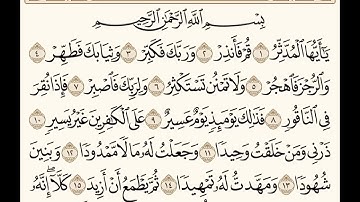 بِسْمِ اللَّهِ الرَّحْمَٰنِ الرَّحِيمِ
يَا أَيُّهَا الْمُدَّثِّرُ ١ قُمْ فَأَنْذِرْ ٢ وَرَبَّكَ فَكَبِّرْ ٣ وَثِيَابَكَ فَطَهِّرْ ٤
وَالرُّجْزَ فَاهْجُرْ ٥ وَلَا تَمْنُنْ تَسْتَكْثِرُ ٦ وَلِرَبِّكَ فَاصْبِرْ ٧ فَإِذَا نُقِرَ
فِي النَّاقُورِ ٨ فَذَٰلِكَ يَوْمَئِذٍ يَوْمٌ عَسِيرٌ ٩ عَلَى الْكَافِرِينَ غَيْرُ يَسِيرٍ ١٠
ذَرْنِي وَمَنْ خَلَقْتُ وَحِيدًا ١١ وَجَعَلْتُ لَهُ مَالًا مَمْدُودًا ١٢ وَبَنِينَ
شُهُودًا ١٣ وَمَهَّدْتُ لَهُ تَمْهِيدًا ١٤ ثُمَّ يَطْمَعُ أَنْ أَزِيدَ ١٥ كَلَّا إِنَّهُ